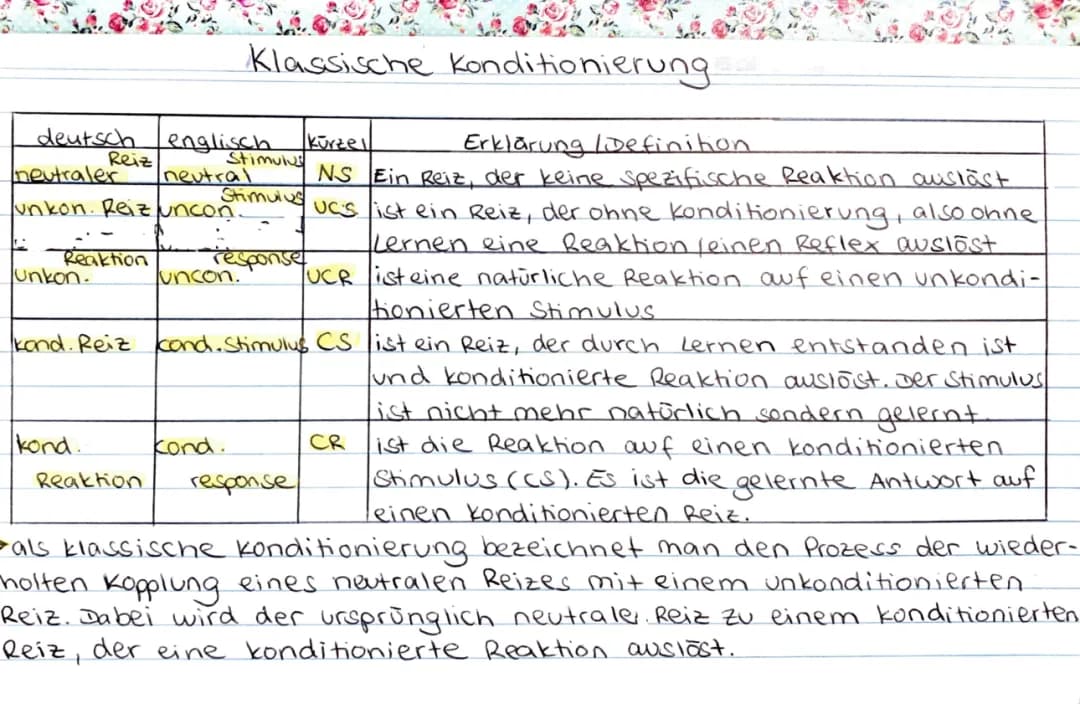 Klassische Konditionierung
deutsch englisch Kürzel Erklärung/Definition
neutraler Reiz neutral Stimulus NS Ein Reiz, der keine spezifische Reaktion auslöst
unkon. Reiz uncon. Stimulus UCS ist ein Reiz, der ohne Konditionierung, also ohne
Lernen eine Reaktion/einen Reflex auslöst
unkon. Reaktion uncon. response UCR ist eine natürliche Reaktion auf einen unkondi-
tionierten Stimulus
kond. Reiz cond. Stimulus CS ist ein Reiz, der durch Lernen entstanden ist
und konditionierte Reaktion auslöst. Der Stimulus
ist nicht mehr natürlich sondern gelernt.
kond. cond. CR ist die Reaktion auf einen konditionierten
Reaktion response Stimulus (CS). Es ist die gelernte Antwort auf
einen konditionierten Reiz.
als klassische Konditionierung bezeichnet man den Prozess der wieder-
holten Kopplung eines neutralen Reizes mit einem unkonditionierten
Reiz. Dabei wird der ursprünglich neutrale Reiz zu einem konditionierten
Reiz, der eine konditionierte Reaktion auslöst.